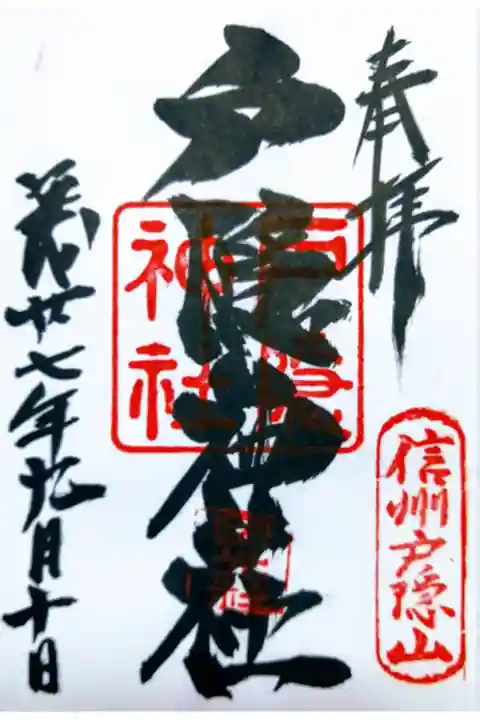 奉拝
信州戸隠山
戸隠神社
戸隠
神社
廿七年九月十日